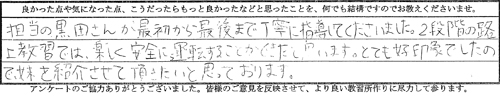 良かった点や気になった点、こうだったらもっと良かったなどと思ったことを、何でも結構ですのでお教えくださいませ。
担当の黒田さんが最初から最後まで丁寧に指導してくださいました。2段階の路
上教習では、楽しく安全に運転することができたと思います。とても好印象でしたの
で妹を紹介させて頂きたいと思っております。
アンケートのご協力ありがとうございました。皆様のご意見を反映させて、より良い教習所作りに尽力して参ります。